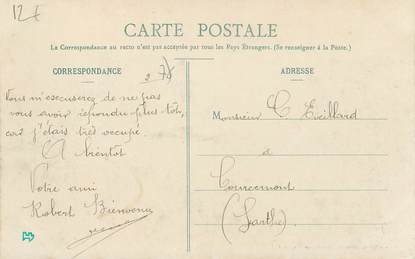 12 f
CARTE POSTALE
La Correspondance au recto n'est pas acceptée par tous les Pays Étrangers. (Se renseigner à la Poste.)
CORRESPONDANCE
Vous m'excuserez de ne pas
vous avoir répondu plus tôt,
car j'étais très occupé.
A bientôt
Votre ami
Robert Bienvenu
ADRESSE
Monsieur C Eveillard
à
Courcemont
(Sarthe)